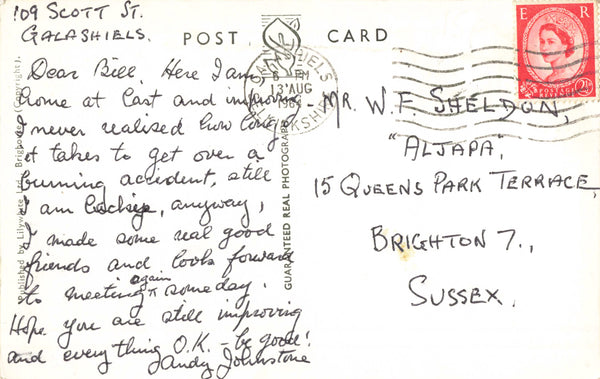 109 SCOTT ST.
GALASHIELS.
POST CARD
Dear Bill, Here I am
home at last and improving
I never realised how long
it takes to get over a
burning accident, still
I am luckye, anyway,
I made some real good
friends and look forward
to meeting again someday.
Hope you are still improving
and everything O.K. - be good!
Andy Johnstone
MR. W. F. SHELDON,
"ALJAPA",
15 QUEENS PARK TERRACE,
BRIGHTON 7.,
SUSSEX.
GALASHIELS
6 PM
13 AUG
SELKIRKSHIRE
E R
POSTAGE REVENUE
2½D
GUARANTEED REAL PHOTOGRAPH
Published by Lilywhite Ltd., Brighouse (Copyright).